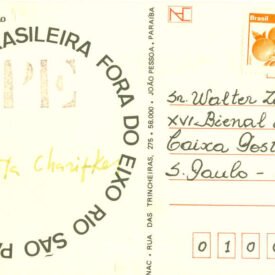 ÃO
BRASILEIRA FORA DO EIXO RIO SÃO PA
PE
NAC • RUA DAS TRINCHEIRAS, 275 • 58.000 • JOÃO PESSOA, PARAÍBA
Brasil
Sr. Walter Z
XVI Bienal
Caixa Post
S. Paulo -
0 1 0 0